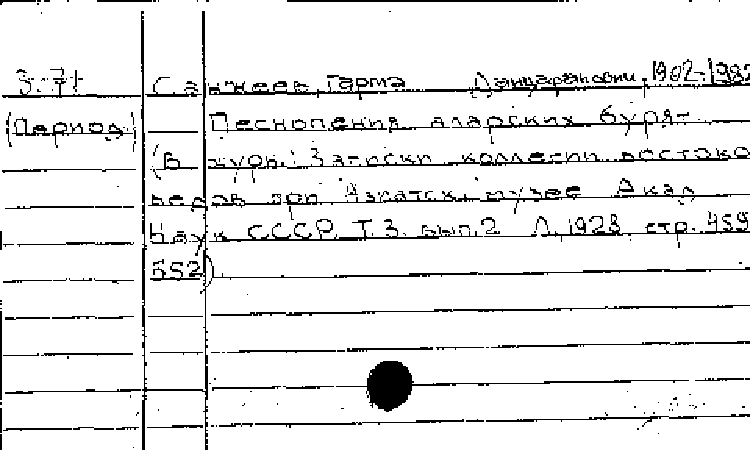 З-71 Санжеев, Гарма Данцаранович, 1902-1982
(Период.) Песнопения аларских бурят
(В журн.: Записки коллегии востоко
ведов при Азиатск. музее Акад.
Наук СССР. Т.3. вып.2 Л. 1928, стр. 459
552)